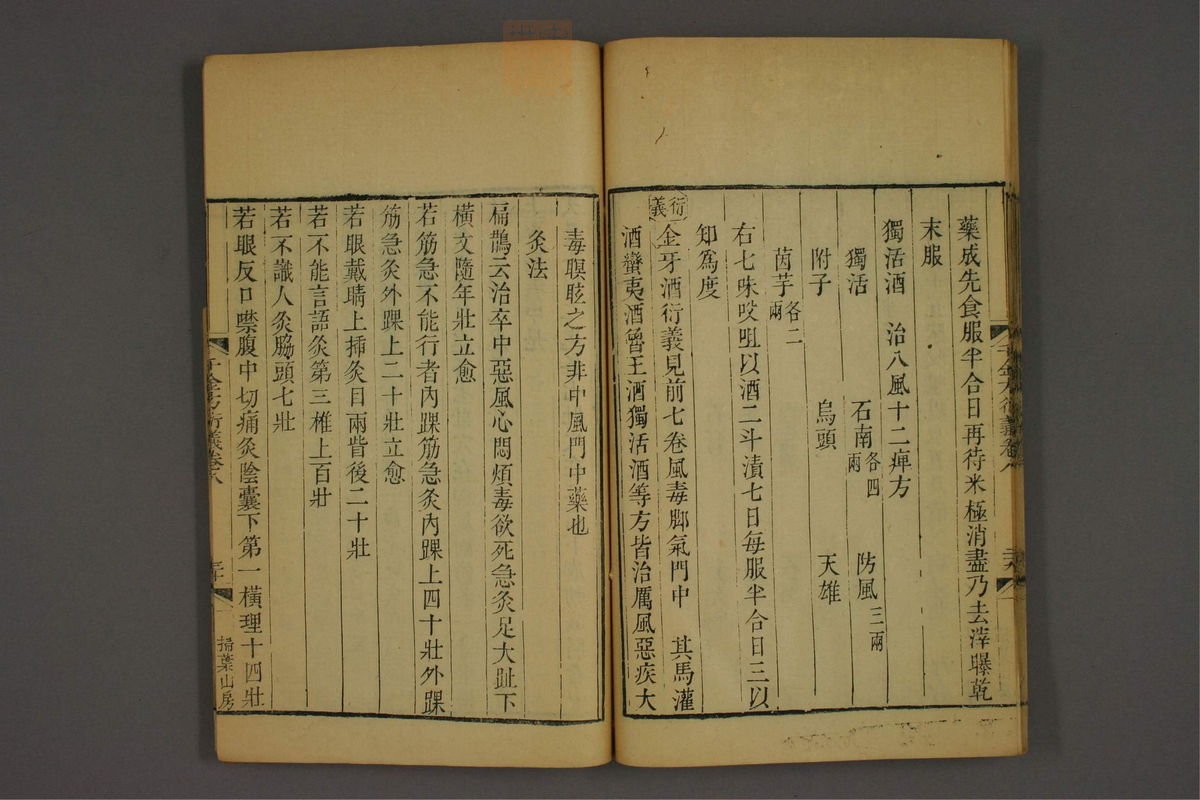 藥成先食服半合日再待米極消盡乃去滓曝乾
末服
獨活酒 治八風十二痺方
獨活 石南各四兩 防風三兩
附子 烏頭 天雄
茵芋各二兩
右七味㕮咀以酒二斗漬七日每服半合日三以
知為度
衍義 金牙酒衍義見前七卷風毒腳氣門中 其馬灌
酒蠻夷酒魯王酒獨活酒等方皆治厲風惡疾大
毒瞑眩之方非中風門中藥也
灸法
扁鵲云治卒中惡風心悶煩毒欲死急灸足大趾下
橫文隨年壯立愈
若筋急不能行者內踝筋急灸內踝上四十壯外踝
筋急灸外踝上二十壯立愈
若眼戴睛上揷灸目兩眥後二十壯
若不能言語灸第三椎上百壯
若不識人灸脇頭七壯
若眼反口噤腹中切痛灸陰囊下第一橫理十四壯
千金方衍義卷八
掃葉山房